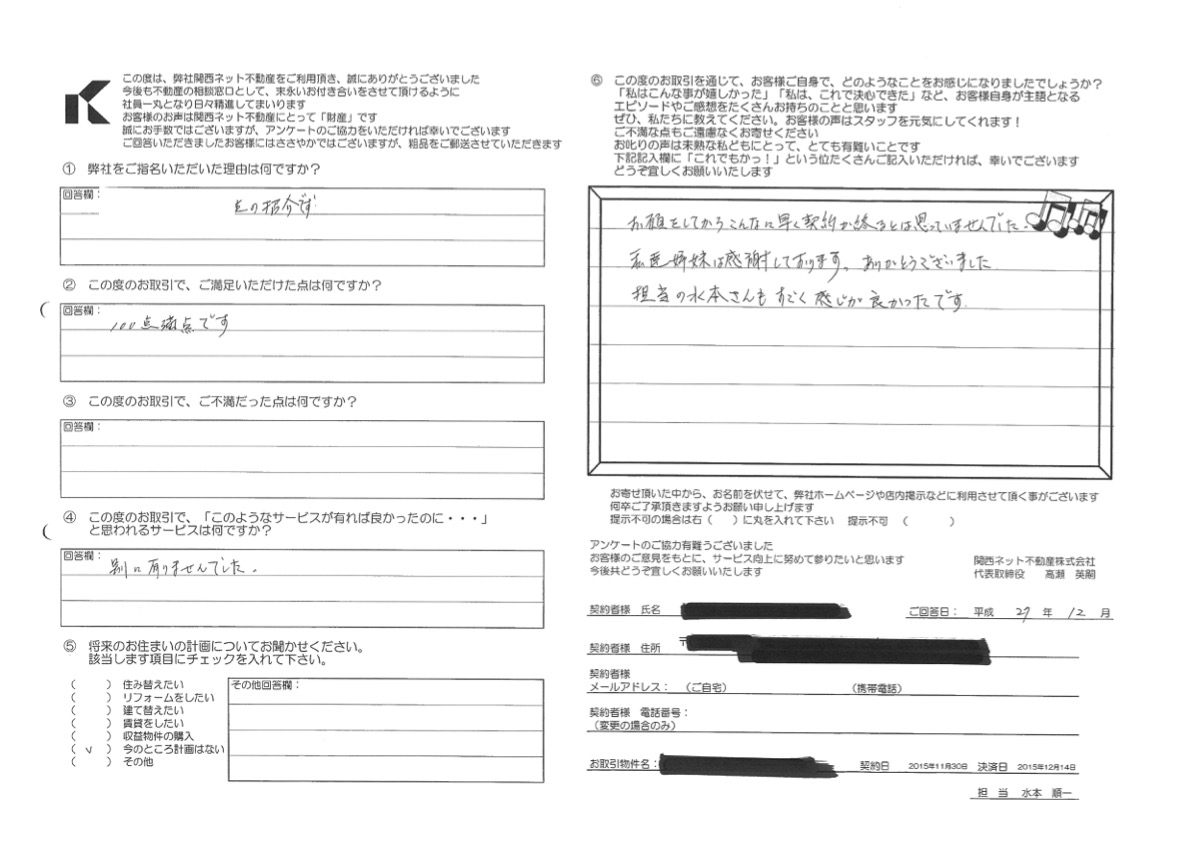 この度は、弊社関西ネット不動産をご利用頂き、誠にありがとうございました
今後も不動産の相談窓口として、末永いお付き合いをさせて頂けるように
社員一丸となり日々精進してまいります
お客様のお声は関西ネット不動産にとって「財産」です
誠にお手数ではございますが、アンケートのご協力をいただければ幸いでございます
ご回答いただきましたお客様にはささやかではございますが、粗品をご郵送させていただきます
① 弊社をご指名いただいた理由は何ですか？
回答欄：
の紹介です
② この度のお取引で、ご満足いただけた点は何ですか？
回答欄：
100点満点です
③ この度のお取引で、ご不満だった点は何ですか？
回答欄：
④ この度のお取引で、「このようなサービスが有れば良かったのに・・・」
と思われるサービスは何ですか？
回答欄：
別に有りませんでした。
⑤ 将来のお住まいの計画についてお聞かせください。
該当します項目にチェックを入れて下さい。
（　　） 住み替えたい
（　　） リフォームをしたい
（　　） 建て替えたい
（　　） 賃貸をしたい
（　　） 収益物件の購入
（ ∨ ） 今のところ計画はない
（　　） その他
その他回答欄：
⑥ この度のお取引を通じて、お客様ご自身で、どのようなことをお感じになりましたでしょうか？
「私はこんな事が嬉しかった」「私は、これで決心できた」など、お客様自身が主語となる
エピソードやご感想をたくさんお持ちのことと思います
ぜひ、私たちに教えてください。お客様の声はスタッフを元気にしてくれます！
ご不満な点もご遠慮なくお寄せください
お叱りの声は未熟な私どもにとって、とても有難いことです
下記記入欄に「これでもかっ！」という位たくさんご記入いただければ、幸いでございます
どうぞ宜しくお願いいたします
お願をしてからこんなに早く契約が終るとは思っていませんでした。
私達姉妹は感謝しております。ありがとうございました
担当の水本さんもすごく感じが良かったです.
お寄せ頂いた中から、お名前を伏せて、弊社ホームページや店内掲示などに利用させて頂く事がございます
何卒ご了承頂きますようお願い申し上げます
提示不可の場合は右（　　）に丸を入れて下さい　提示不可　（　　　　）
アンケートのご協力有難うございました
お客様のご意見をもとに、サービス向上に努めて参りたいと思います
今後共どうぞ宜しくお願いいたします
関西ネット不動産株式会社
代表取締役　高瀬
契約者様 氏名
ご回答日：　平成　27　年　12　月
契約者様 住所
〒
契約者様
メールアドレス：　（ご自宅）　（携帯電話）
契約者様 電話番号：
（変更の場合のみ）
お取引物件名：　契約日　2015年11月30日　決済日　2015年12月14日
担　当　水本　順一